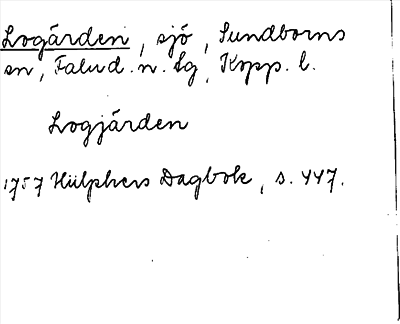 Logärden, sjö, Sundborns
sn, Falud. n. tg, Kopp. l.
Logjärden
1757 Hülphers Dagbok, s. 447.